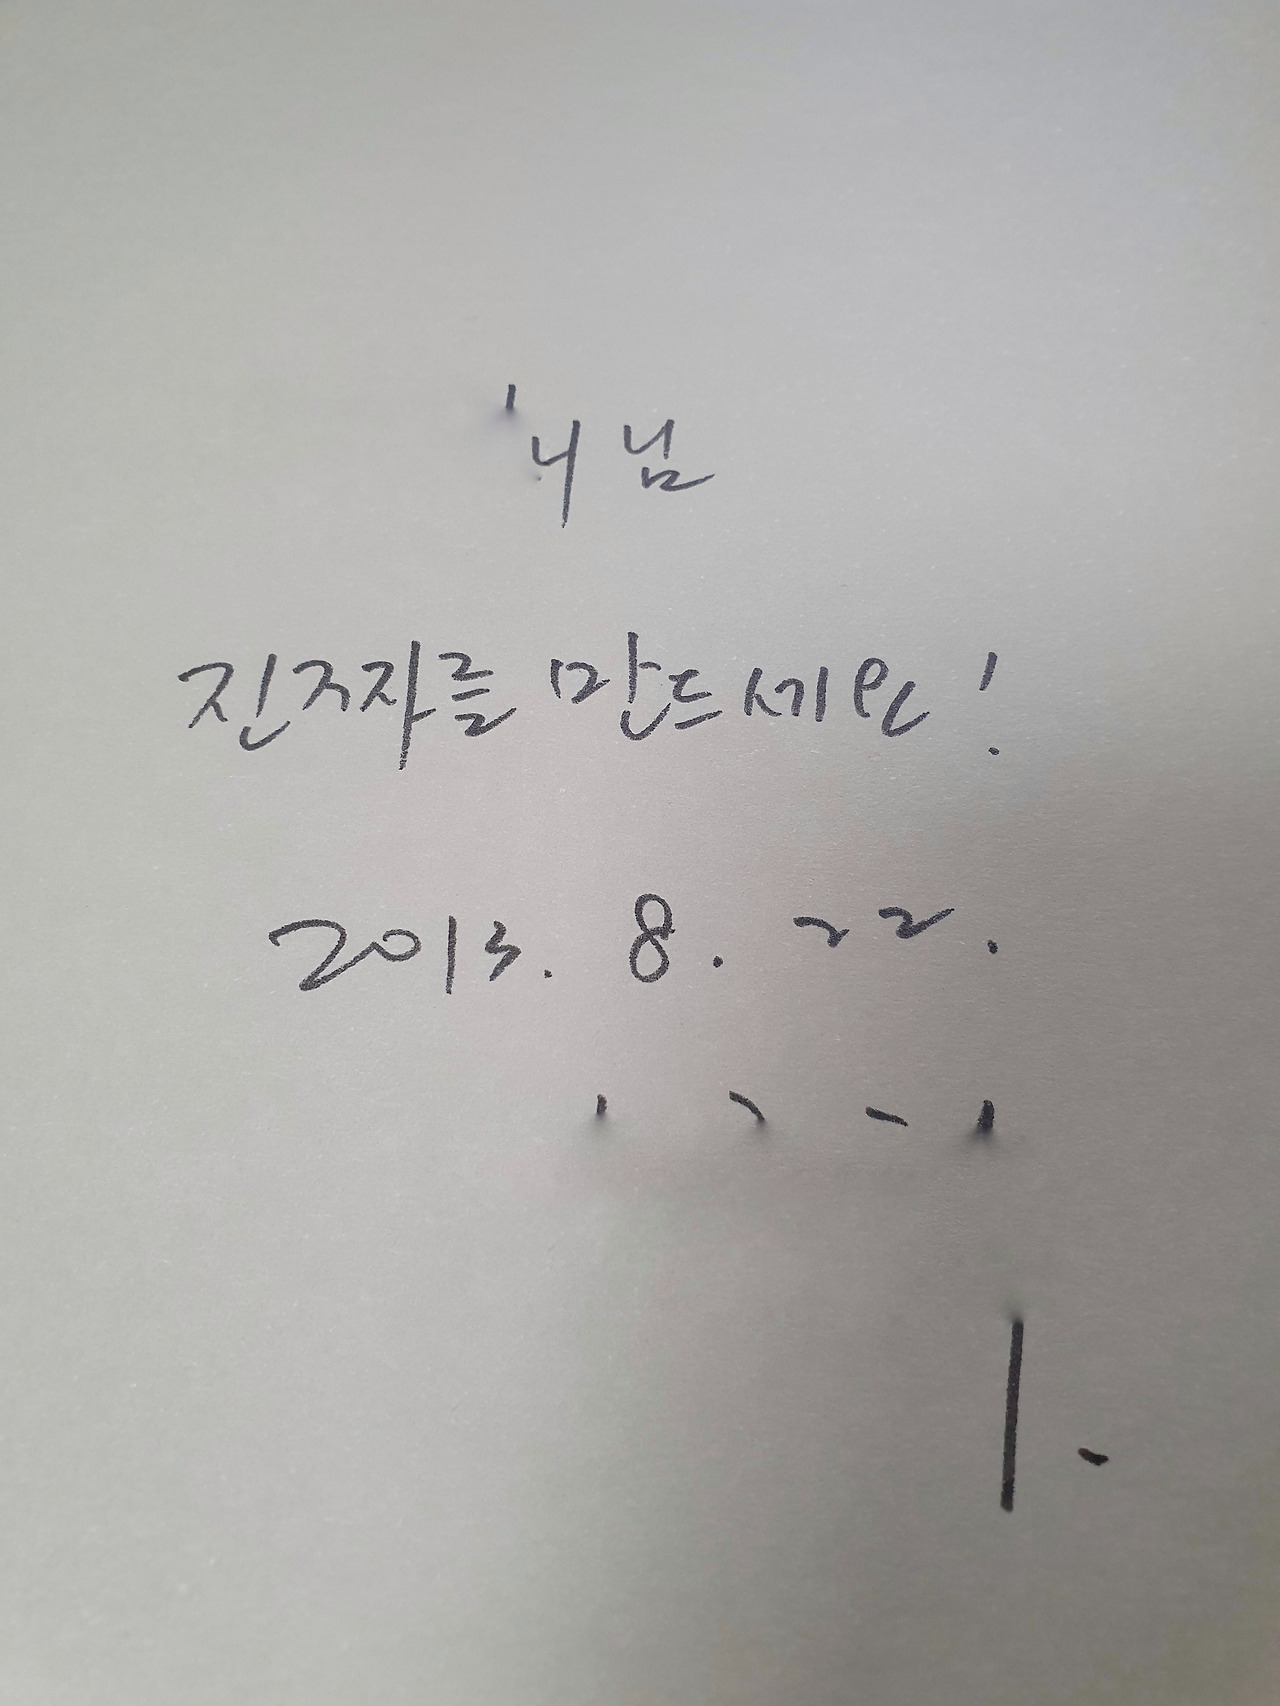 님
진짜를 만드세요!
2013. 8. 22.